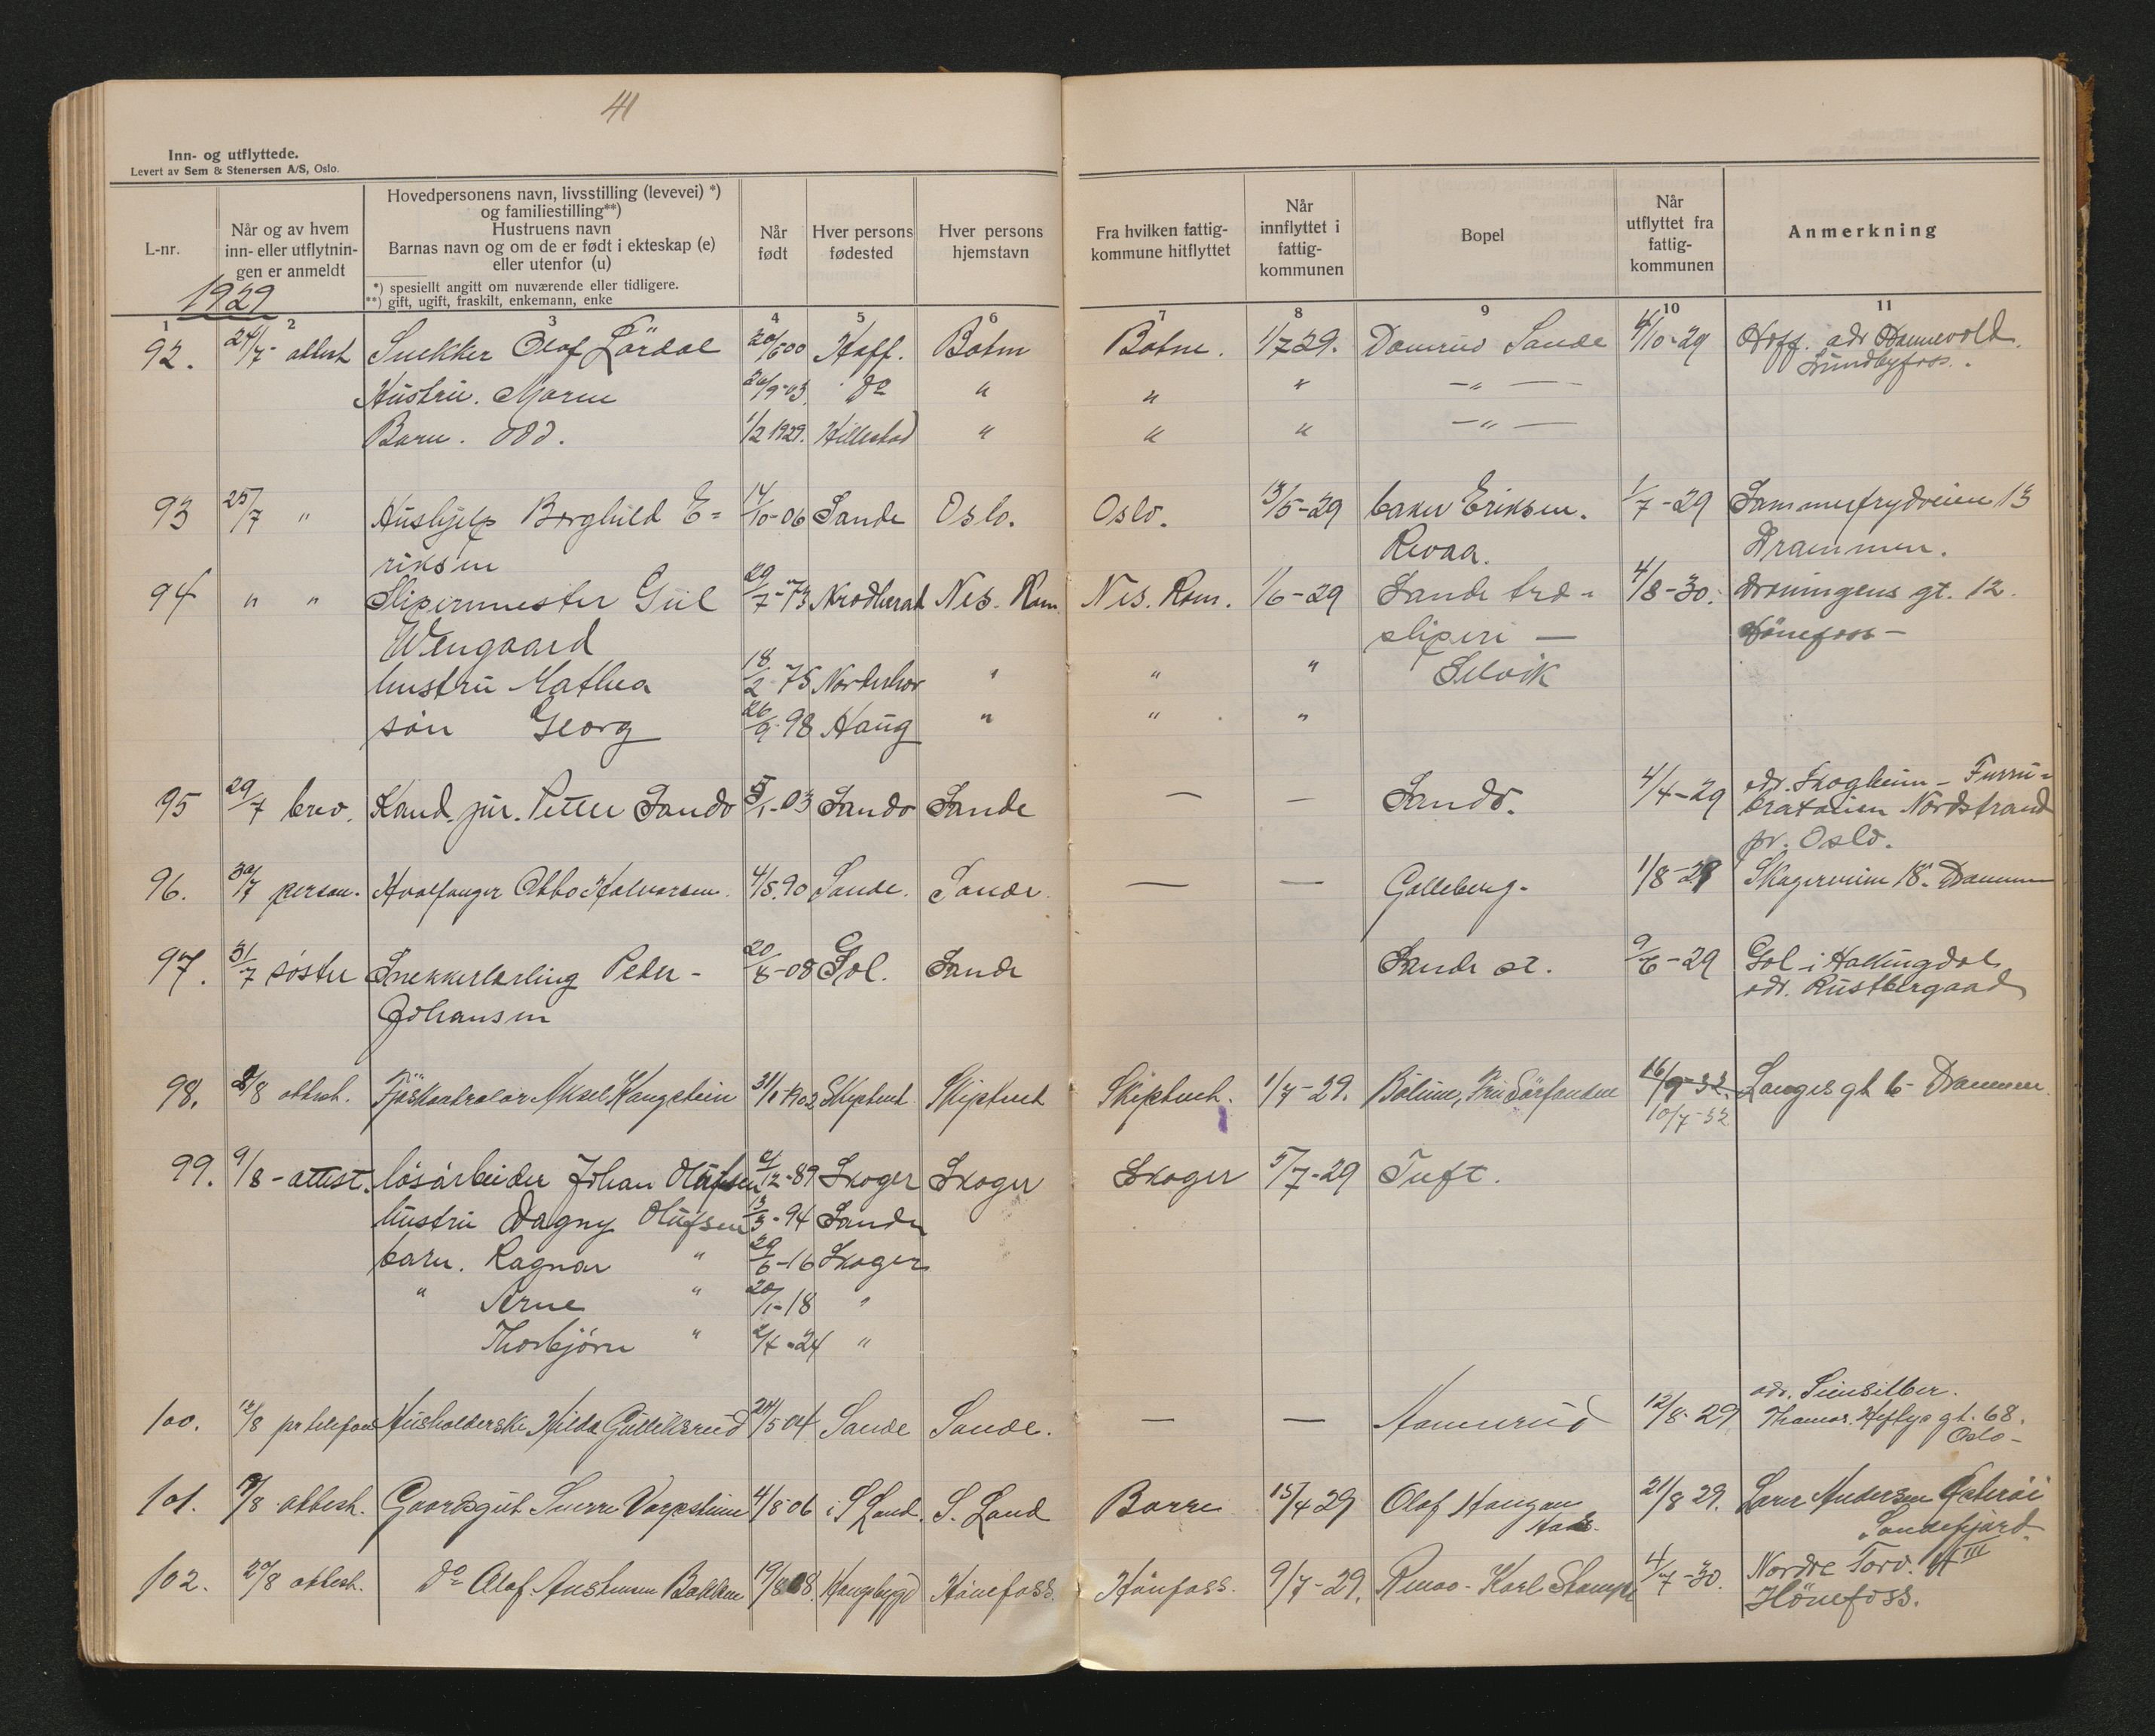 41
Inn- og utflyttede.
Levert av Sem & Stenersen A/S, Oslo.
L-nr.
Når og av hvem
inn- eller utflytnin-
gen er anmeldt
Hovedpersonens navn, livsstilling (levevei) *)
og familiestilling**)
Hustruens navn
Barnas navn og om de er født i ekteskap (e)
eller utenfor (u)
*) spesiellt angitt om nuværende eller tidligere.
**) gift, ugift, fraskilt, enkemann, enke
Når
født
Hver persons
fødested
Hver persons
hjemstavn
Fra hvilken fattig-
kommune hitflyttet
Når
innflyttet i
fattig-
kommunen
Bopel
Når
utflyttet fra
fattig-
kommunen
Anmerkning
1929
1 2 3 4 5 6 7 8 9 10 11
92. 24/7 - attest Snekker Olaf Lördal 20/6 00 Hoff. Botne Botne. 1/7 29. Sande 4/10-29 Hoff. adr Hannevold
Sundbyfoss.
Hustru. Maren 26/9-03. do " " " - " -
Barn. Odd. 1/2 1929. Hillestad " " " - " -
93 25/7 " Hushjelp Borghild E= 14/10-06 Sande Oslo. Oslo. 13/5-29 baker Eriksen. 1/7-29 Sommerfrydveien 13
riksen Revaa. Drammen.
94 " " Slipermester Gul 29/7-73 Krødherad Nes. Rom. Nes. Rom. 1/6-29 Sande tre= 4/8-30. Droningens gt. 12.
Wengaard sliperi — Hönefoss -
hustru Mathea 18/2 75 Norderhov " " " Selvik
sön Georg 26/9-98 Haug " " "
95 29/7 brev. Kand. jur. Petter Sando 5/1-03 Sando Sande — — Sando. 4/4-29 adr. Skogheim - Furru=
Nordstrand
pr. Oslo.
96. 30/7 person. Hvalfanger Abbo Halvorsen. 4/5.90 Sande. Sande. — — Galleberg. 1/8-29 Skogerveien 18. Drammen
97. 31/7 söster Snekkerlærling Peder - 20/8-08 Gol. Sande Sande st. 9/6-29 Gol i Hallingdal
Johansen adr. Rustbergaard
98. 2/8 attest. Fjöskontrolör Aksel Haugstein 31/1-1902 Skiptvet Skiptvet Skiptvet. 1/7-29. 16/9-32. Langes gt 6 - Drammen.
10/7-32
99. 9/8 - attest. lösarbeider Johan Olufsen 2/12-89 Skoger Skoger Skoger 5/7-29 Tuft.
hustru Dagny Olufsen 3/3-94 Sande
barn. Ragnar " 29/6-16 Skoger
" Arne " 20/1-18 "
Thorbjörn " 2/4-24 "
100. 12/8 pr telefon Husholderske Hilda Gulliksrud 24/5 04 Sande Sande. — — Homerud 12/8-29 adr.
Thomas Heftyes gt. 68.
Oslo -
101. 19/8 attest. Gaardsgut Sverre Vorpstuen 4/8 06 i S. Land. S. Land Borre 15/4 29 Olaf Haugan 21/8 29. Lærer Andersen
Sandefjord
102. 20/8 attest. do Olaf Bakken 19/8 08. Haugsbygd Hönefoss. Hönfoss. 9/7-29. Revaa - Karl 4/7-30. Nordre Torv. 4 III
Hönefoss.